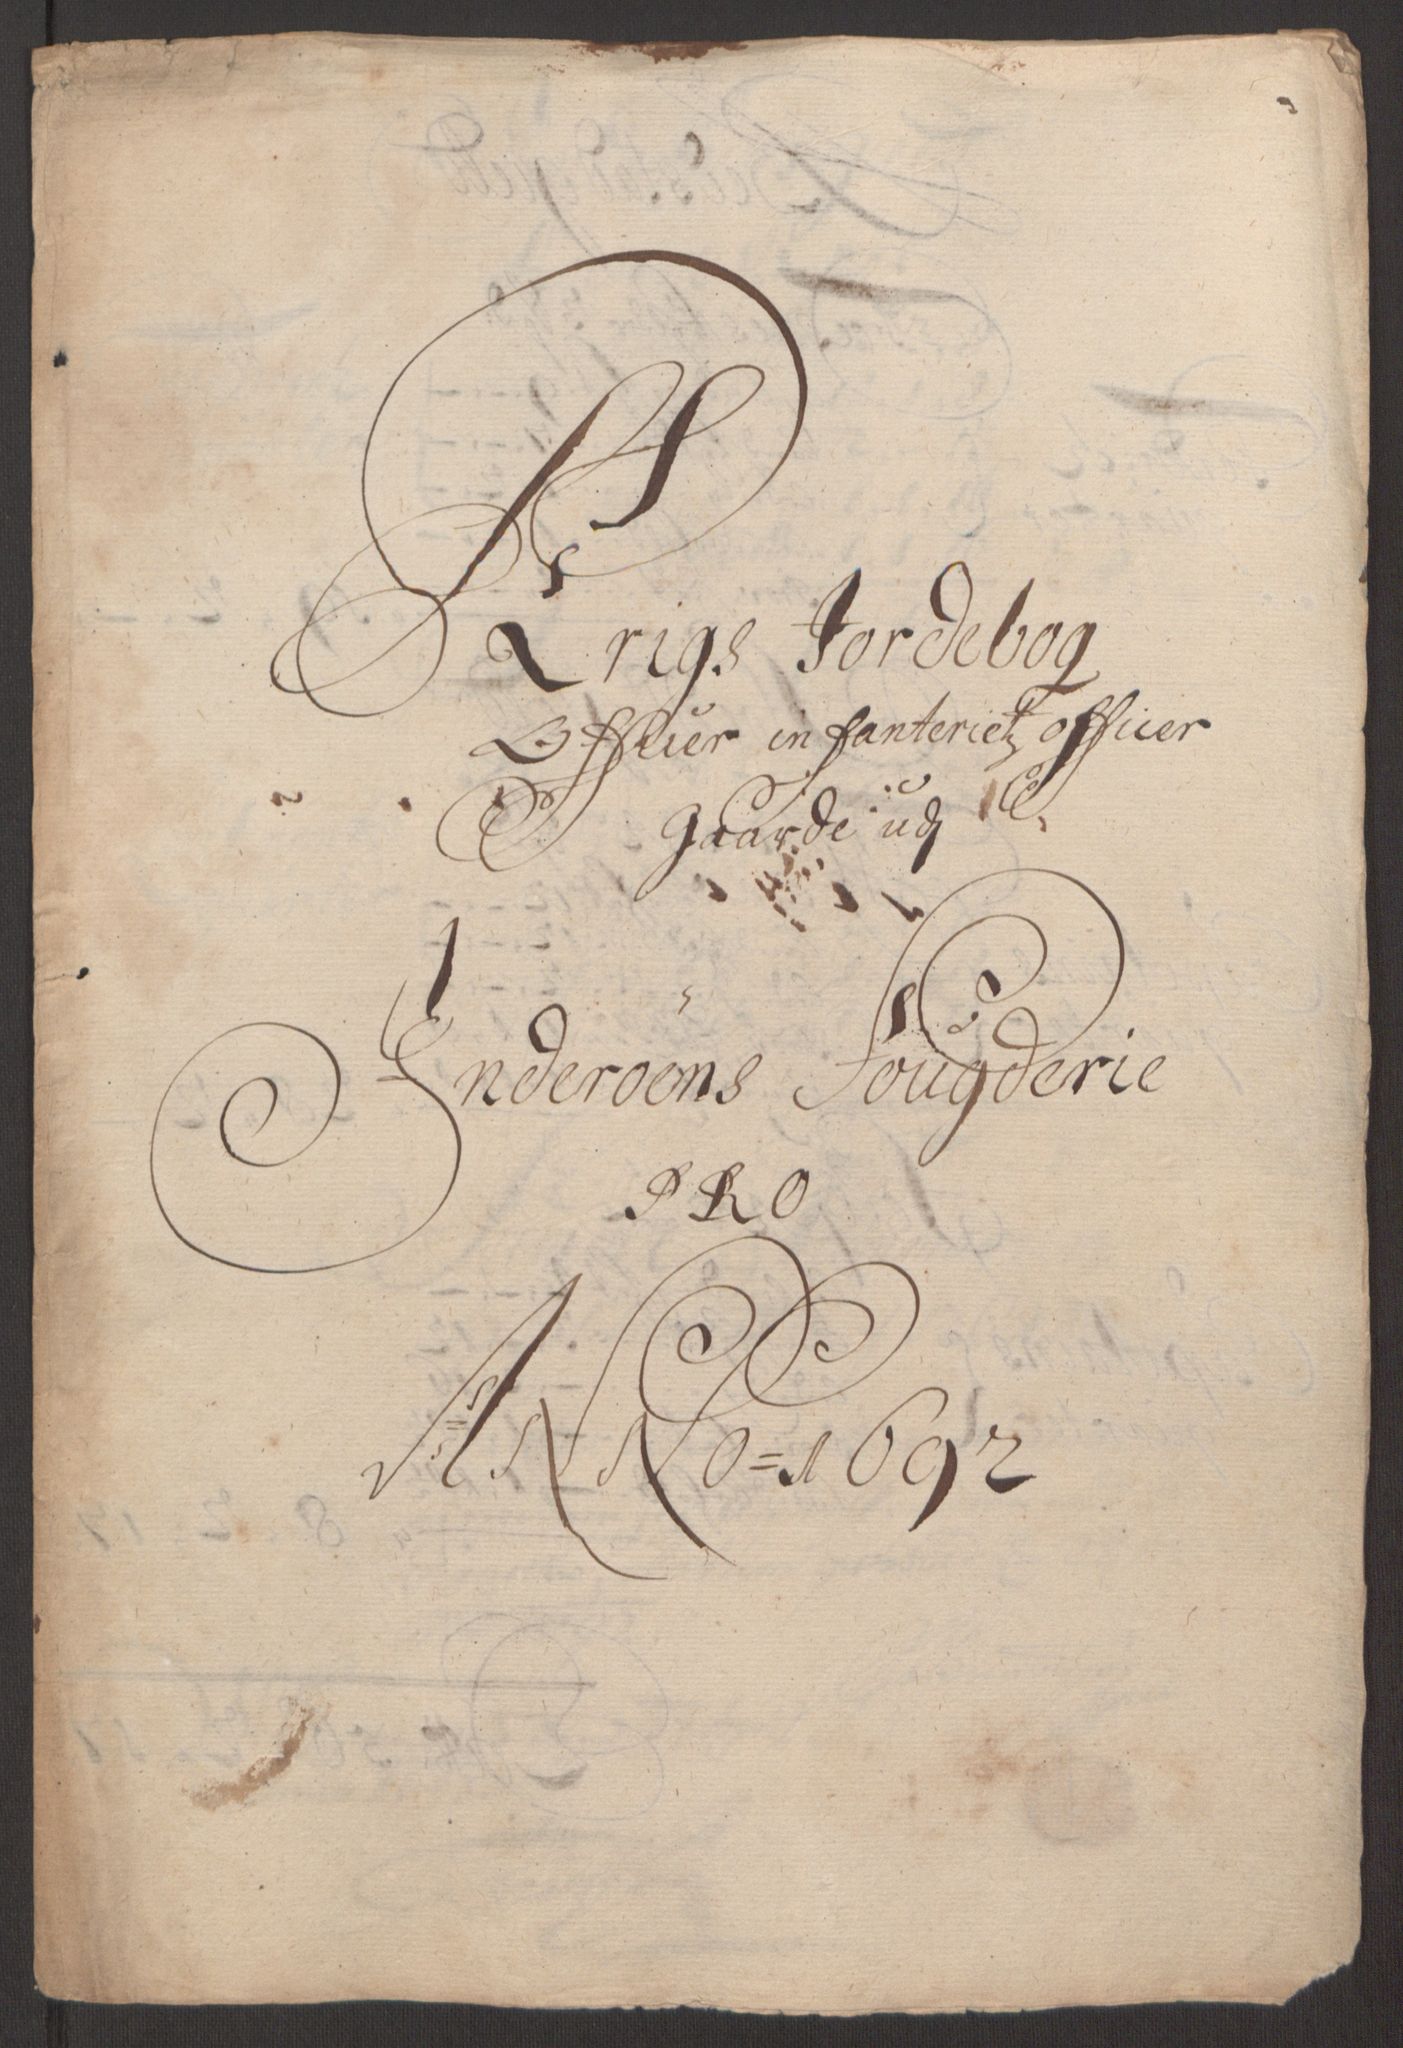 Krigs Jordebog
Offuer infanteriets officer
gaarde udj
Inderoens Fougderie
PRO
ANNO = 1692